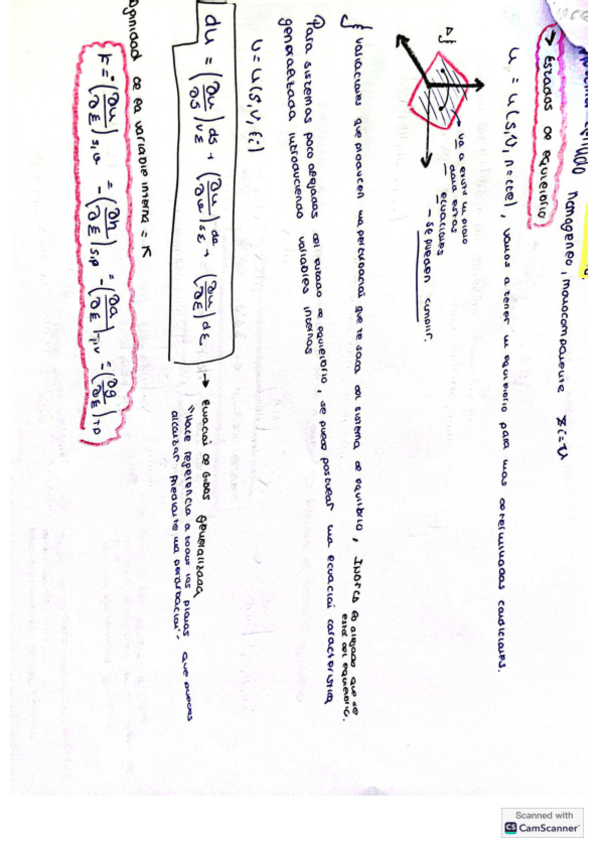 homogéneo, monocomponente zi=v
→ Estados de equilibrio
u = u(s,v, n=cte), vamos a tener un equilibrio para unas determinadas condiciones.
va a existir un plano
donde estas
ecuaciones
- se pueden cumplir.
Δξ
ξ variaciones que producen una perturbación que te saca del sistema de equilibrio, Índice de alejado que se
está del equilibrio.
Para sistemas poco alejados del estado de equilibrio, se puede postular una ecuación característica
generalizada introduciendo variables internas
u = u(s, v, ξi)
du = (∂u/∂s)vξ ds + (∂u/∂v)sξ dv + (∂u/∂ξ) dξ → Ecuación de Gibbs generalizada
"Hace referencia a todos los planos que puedes
alcanzar mediante una perturbación".
Afinidad de la variable interna = K
K = -(∂u/∂ξ)s,v = -(∂h/∂ξ)s,p = -(∂a/∂ξ)T,v = -(∂g/∂ξ)T,p
Scanned with
CS CamScanner